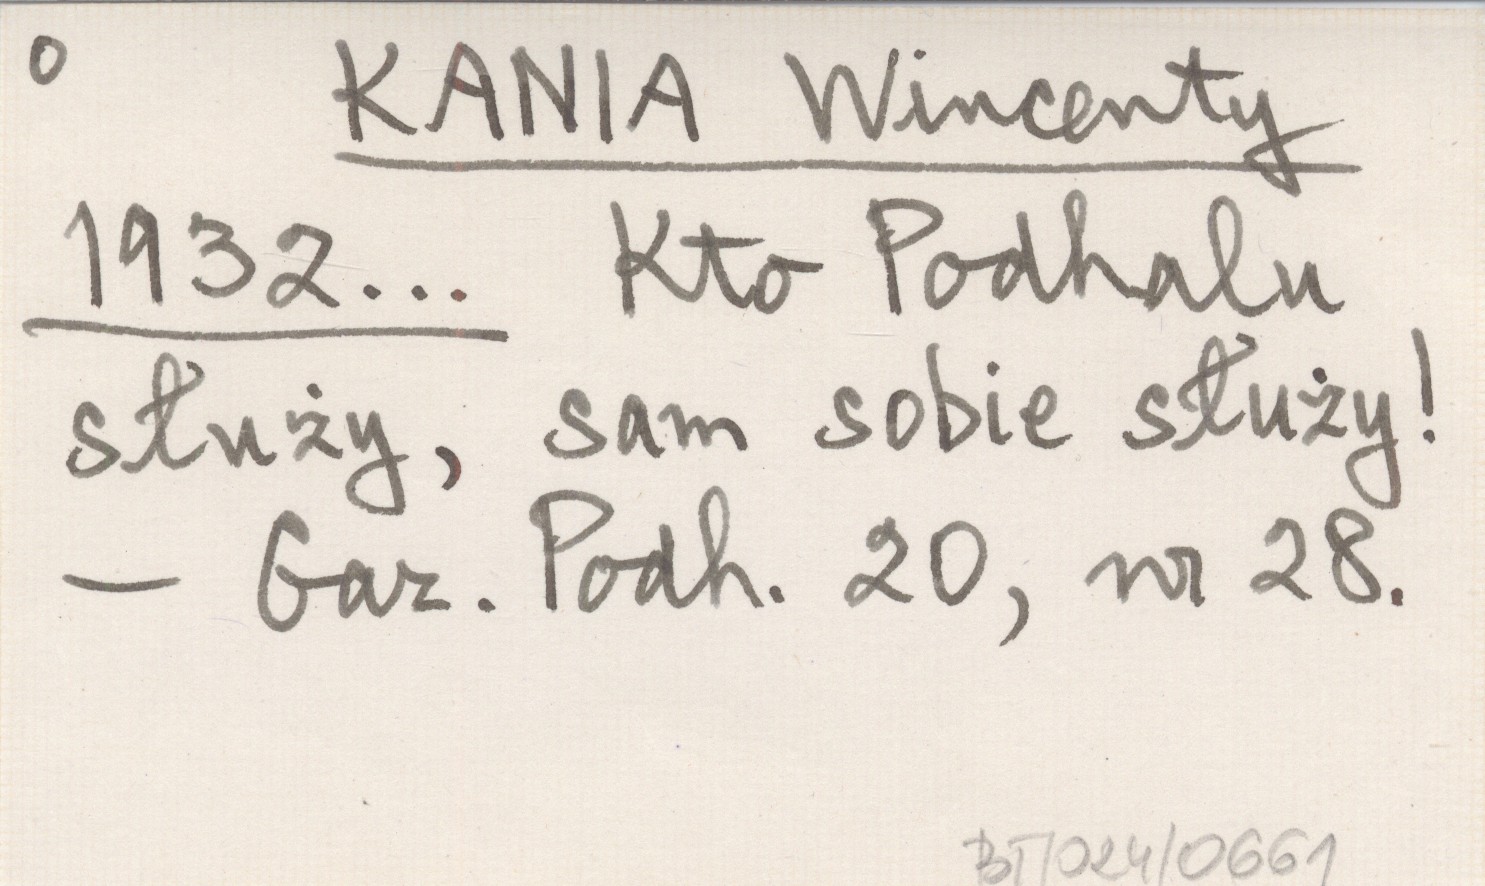 o KANIA Wincenty
1932... Kto Podhalu
służy, sam sobie służy!
— Gaz. Podh. 20, nr 28.
BT/024/0661